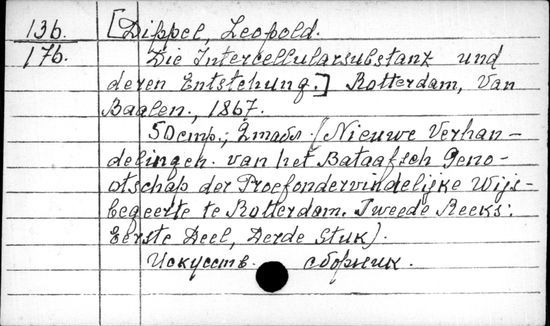 13б. [Dippel, Leopold.
17б. Die Intercellularsubstanz und
deren Entstehung.] Rotterdam, Van
Baalen., 1867.
50стр.; 2табл. (Nieuwe Verhan-
delingen. van het Bataafsch Geno-
otschap der Proefondervindelijke Wijs-
begeerte te Rotterdam. Tweede Reeks:
Eerste Deel, Derde Stuk).
Искусств. сборник.